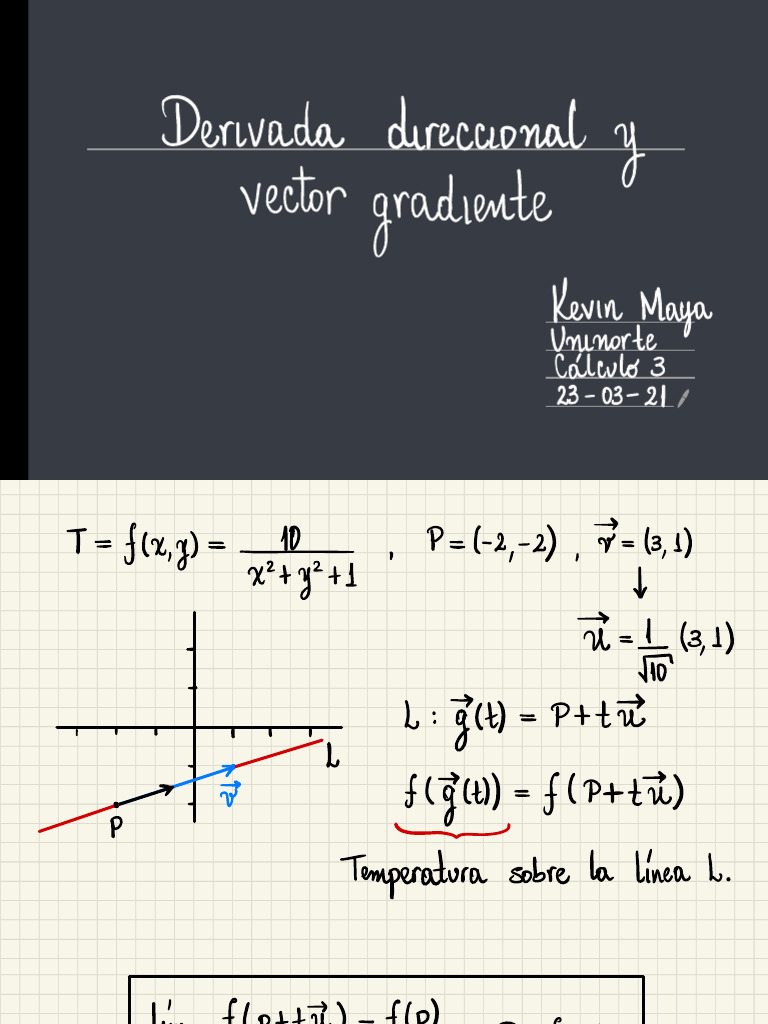 Derivada direccional y
vector gradiente
Kevin Maya
Uninorte
Cálculo 3
23-03-21
T = f(x,y) = 10 / (x² + y² + 1) , P = (-2,-2) , v⃗ = (3,1)
↓
u⃗ = 1/√10 (3,1)
L : g⃗(t) = P + t u⃗
f(g⃗(t)) = f(P + t u⃗)
L
v⃗
P
Temperatura sobre la línea L.
f(P+tu⃗) - f(P)